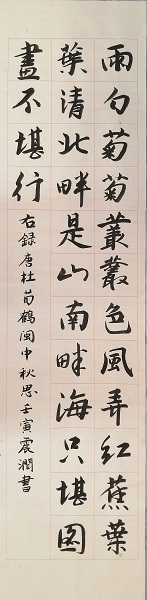 雨勻菊菊叢叢色風弄紅蕉葉
葉清北畔是山南畔海只堪图
盡不堪行
右録唐杜荀鶴閩中秋思壬寅震潤書